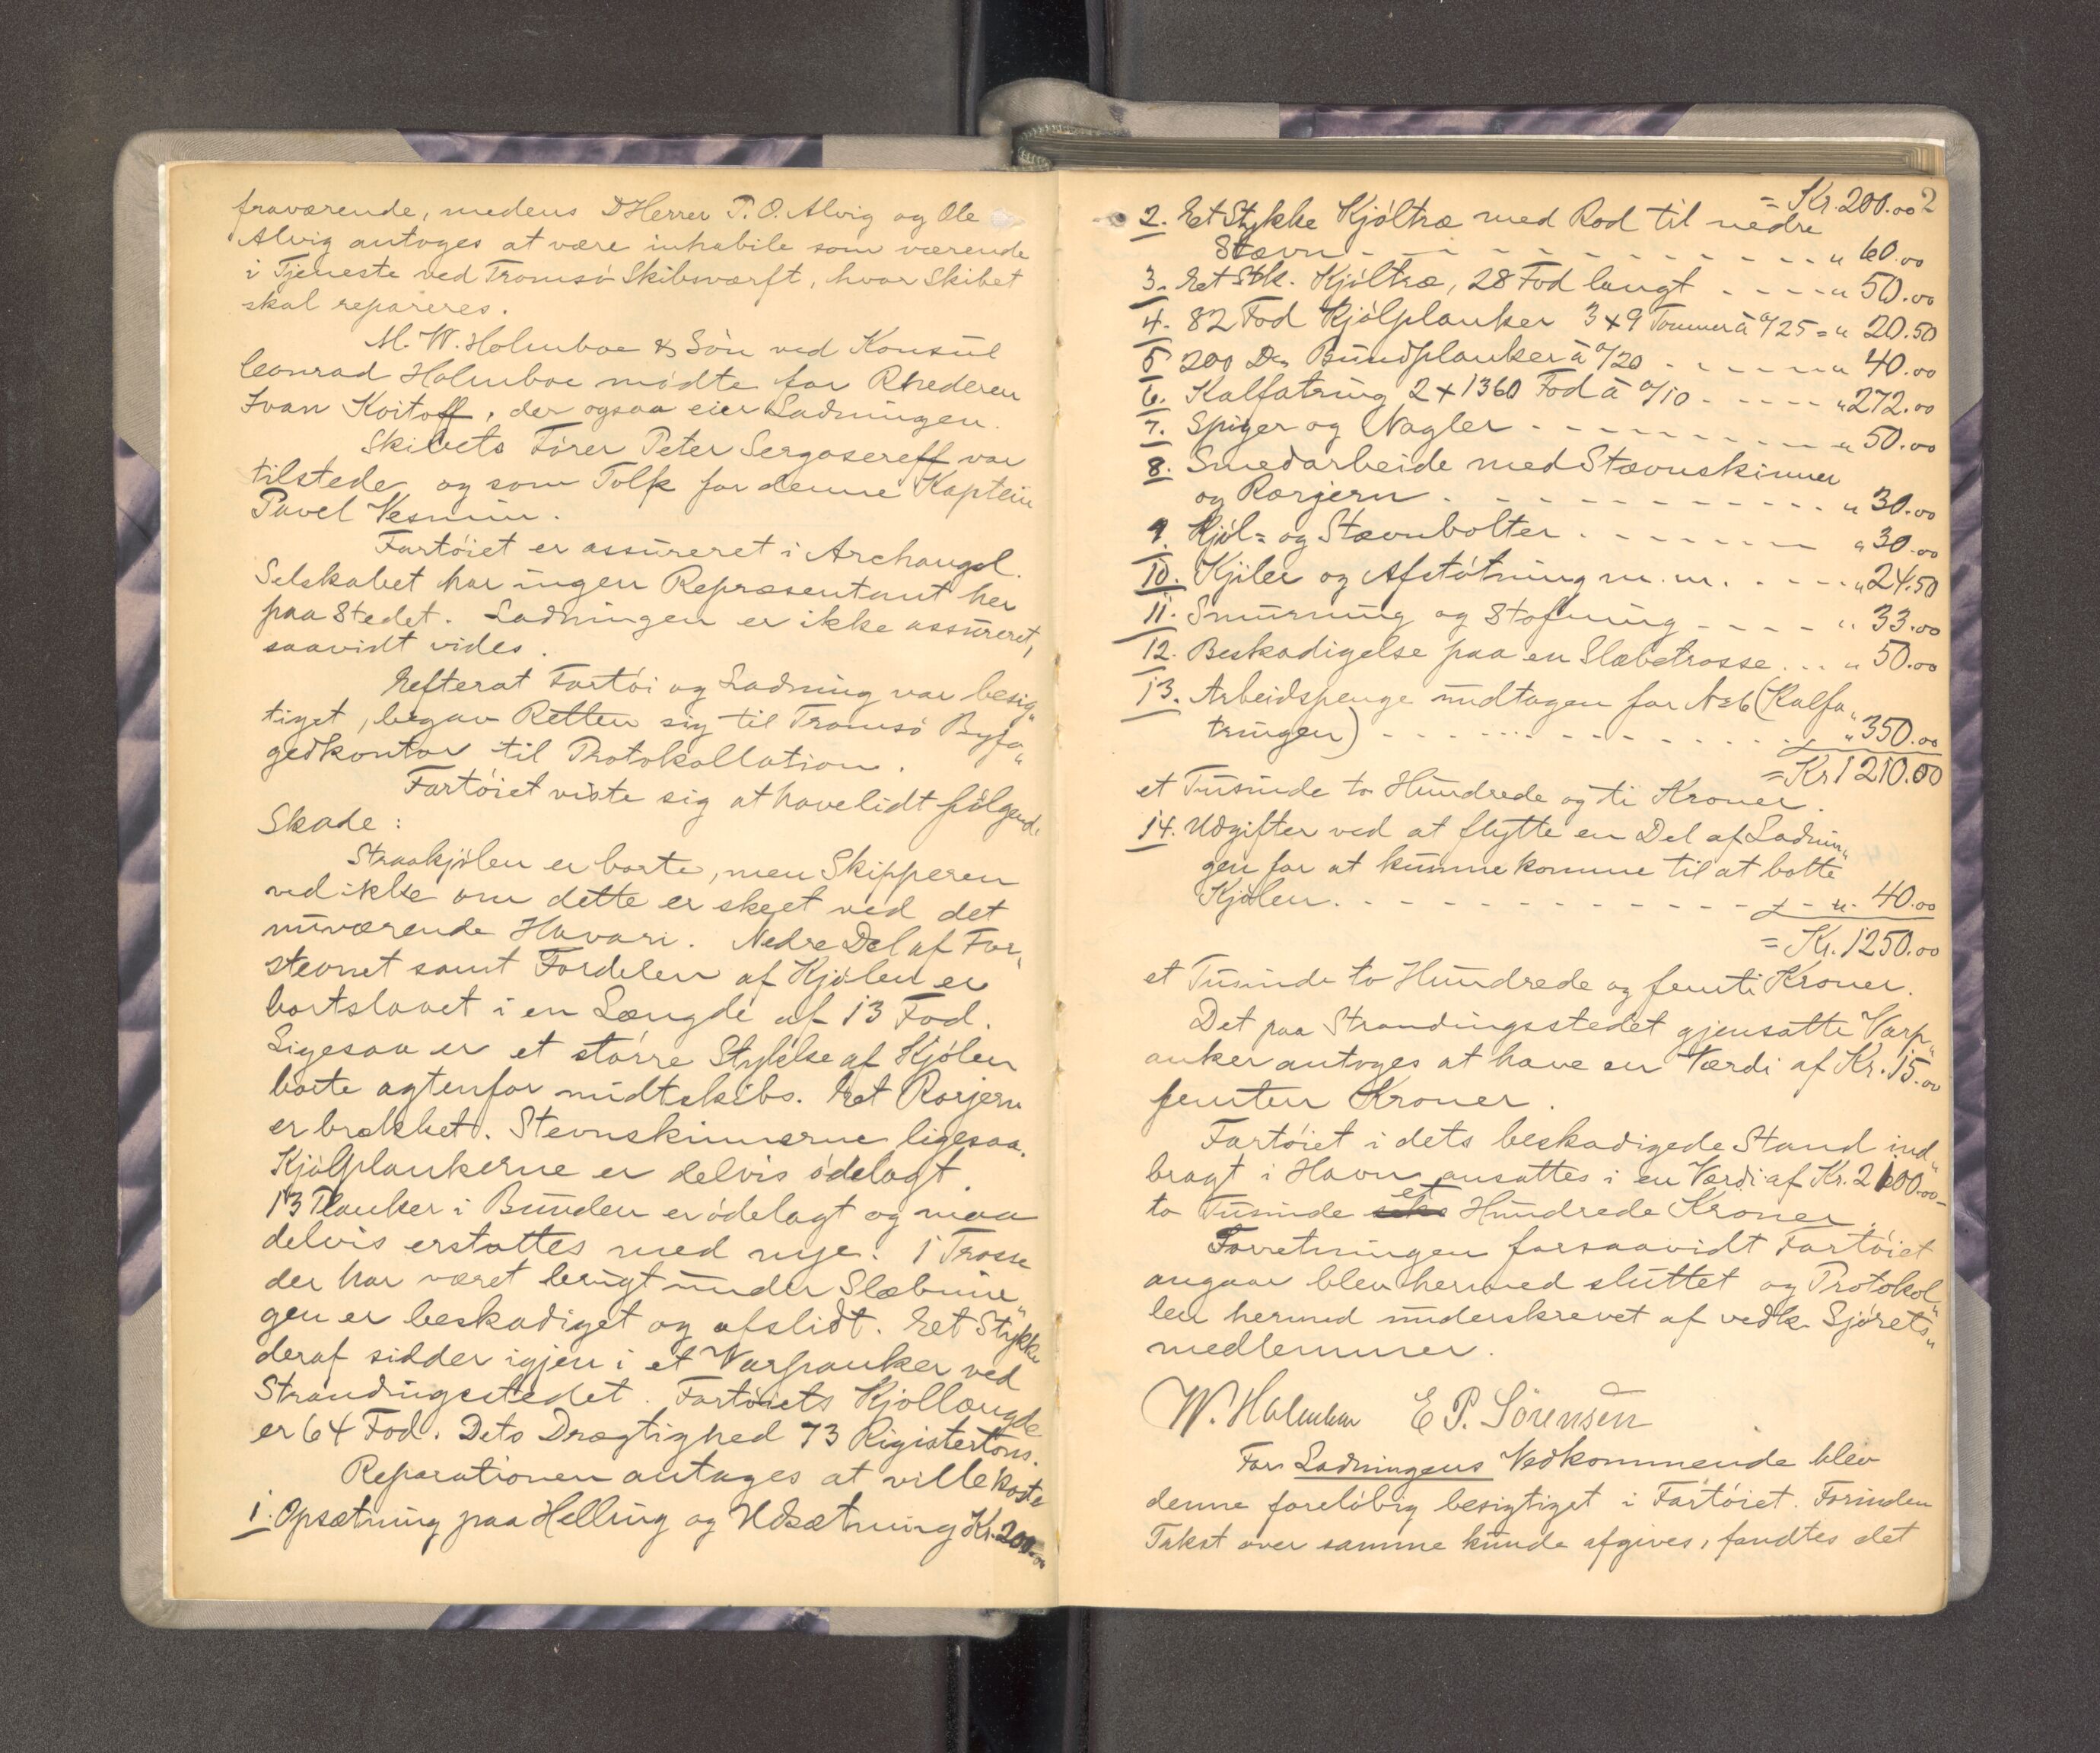 fraværende, medens DHerrer P. O. Alvig og Ole
Alvig antoges at være inhabile som værende
i Tjeneste ved Tromsö Skibsværft, hvor Skibet
skal repareres.
M. W. Holmboe & Sön ved Konsul
Conrad Holmboe mödte for Rhederen
Ivan Koitoff, der ogsaa eier Ladningen.
Skibets Förer Peter Sergasereff var
tilstede og som Tolk for denne Kaptein
Pavel Vesmin.
Fartöiet er assureret i Archangel.
Selskabet har ingen Repræsentant her
paa Stedet. Ladningen er ikke assureret,
saavidt vides.
Efterat Fartöi og Ladning var besig„
tiget, begav Retten sig til Tromsö Byfo„
gedkontor til Protokollation.
Fartöiet viste sig at have lidt fölgende
Skade:
Straakjölen er borte, men Skipperen
ved ikke om dette er skeet ved det
nuværende Havari. Nedre Del af For„
stevnet samt Fordelen af Kjölen er
bortslaaet i en Længde af 13 Fod.
Ligesaa er et större Stykke af Kjölen
borte agtenfor midtskibs. Et Rorjern
er brækket. Stevnskinnerne ligesaa.
Kjölplankerne er delvis ödelagt.
13 Planker i Bunden er ödelagt og maa
delvis erstattes med nye. 1 Trosse
der har været brugt under Slæbnin„
gen er beskadiget og afslidt. Et Stykke
deraf sidder igjen i et Varpanker ved
Strandingsstedet. Fartöiets Kjöllængde
er 64 Fod. Dets Drægtighed 73 Rigistertons.
Reparationen antages at ville koste
1. Opsætning paa Helling og Udsætning Kr. 200.00
= Kr. 200.00 2
2. Et Stykke Kjöltræ med Rod til nedre
Stævn - - - - - - - - - - „ 60.00
3. Et Stk. Kjöltræ, 28 Fod langt - - - - „ 50.00
4. 82 Fod Kjölplanker 3 x 9 Tommer à 0/25 = „ 20.50
5 200 Do Bundplanker à 0/20 - - - - - „ 40.00
6. Kalfatring 2 x 1360 Fod à 0/10 - - - - „ 272.00
7. Spiger og Nagler - - - - - - - - - „ 50.00
8. Smedarbeide med Stævnskinner
og Rorjern - - - - - - - - - - „ 30.00
9. Kjöl= og Stævnbolter - - - - - - - „ 30.00
10. Kjiler og Afstötning m. m. - - - - „ 24.50
11. Smurning og Stofning - - - - „ 33.00
12. Beskadigelse paa en Slæbetrosse... „ 50.00
13. Arbeidspenge undtagen for No 6 (Kalfa„
tringen) - - - - - - - - - - - „ 350.00
= Kr 1210.00
et Tusinde to Hundrede og ti Kroner.
14. Udgifter ved at flytte en Del af Ladnin„
gen for at kunne komme til at bolte
Kjölen - - - - - - - - - - - - „ 40.00
= Kr. 1250.00
et Tusinde to Hundrede og femti Kroner.
Det paa Strandingsstedet gjensatte Varp„
anker antoges at have en Værdi af Kr. 15.00
femten Kroner.
Fartöiet i dets beskadigede Stand ind„
bragt i Havn ansattes i en Værdi af Kr. 2100.00 -
to Tusinde et Hundrede Kroner.
Forretningen forsaavidt Fartöiet
angaar blev hermed sluttet og Protokol„
len hermed underskrevet af vedk. Sjörets„
medlemmer.
W. Holmboe E P. Sörensen
For Ladningens Vedkommende blev
denne forelöbig besigtiget i Fartöiet. Forinden
Takst over samme kunde afgives, fandtes det